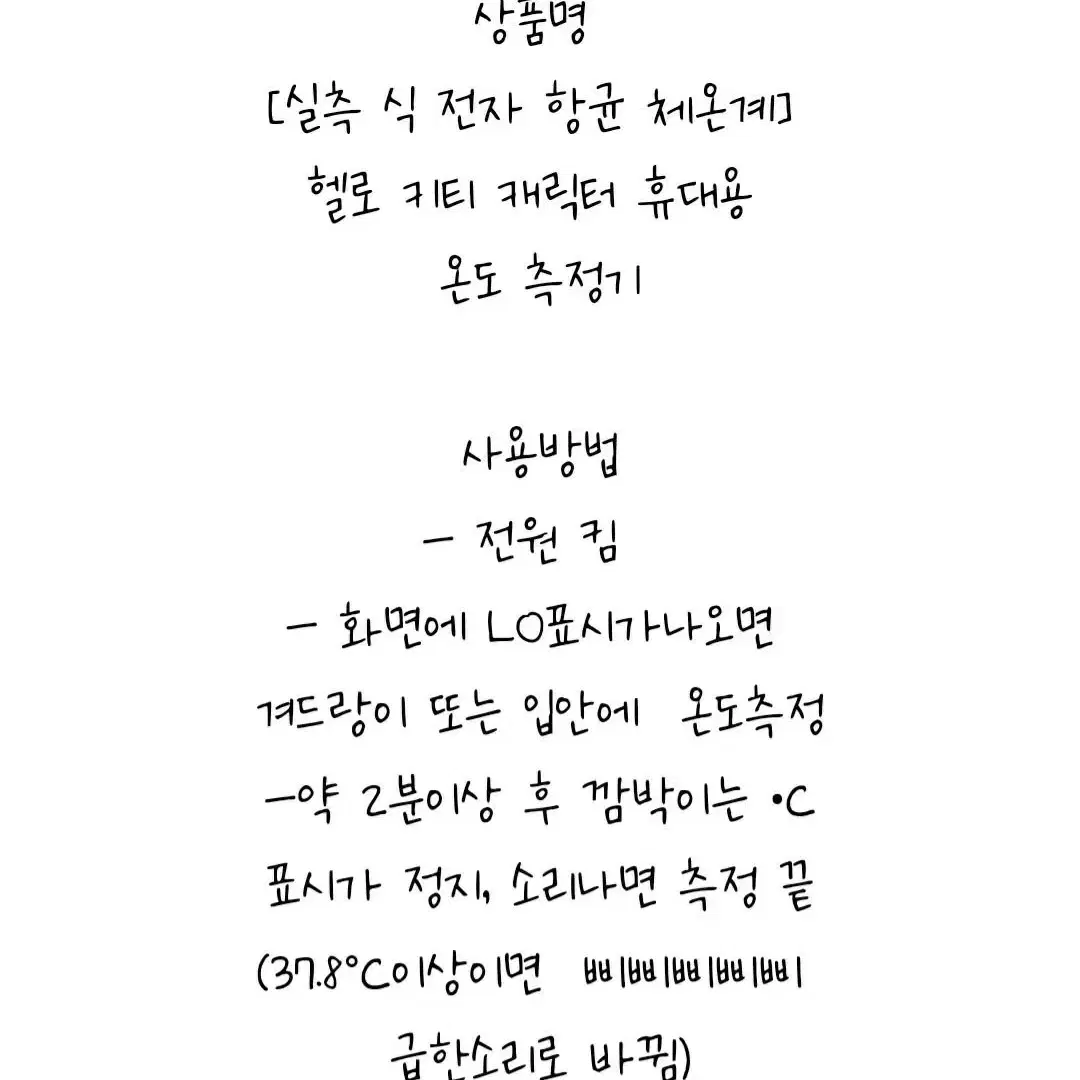 상품명
[실측 식 전자 항균 체온계]
헬로 키티 캐릭터 휴대용
온도 측정기
사용방법
- 전원 킴
- 화면에 LO표시가나오면
겨드랑이 또는 입안에 온도측정
-약 2분이상 후 깜박이는 •C
표시가 정지, 소리나면 측정 끝
(37.8°C이상이면 삐삐삐삐삐
급한소리로 바뀜)